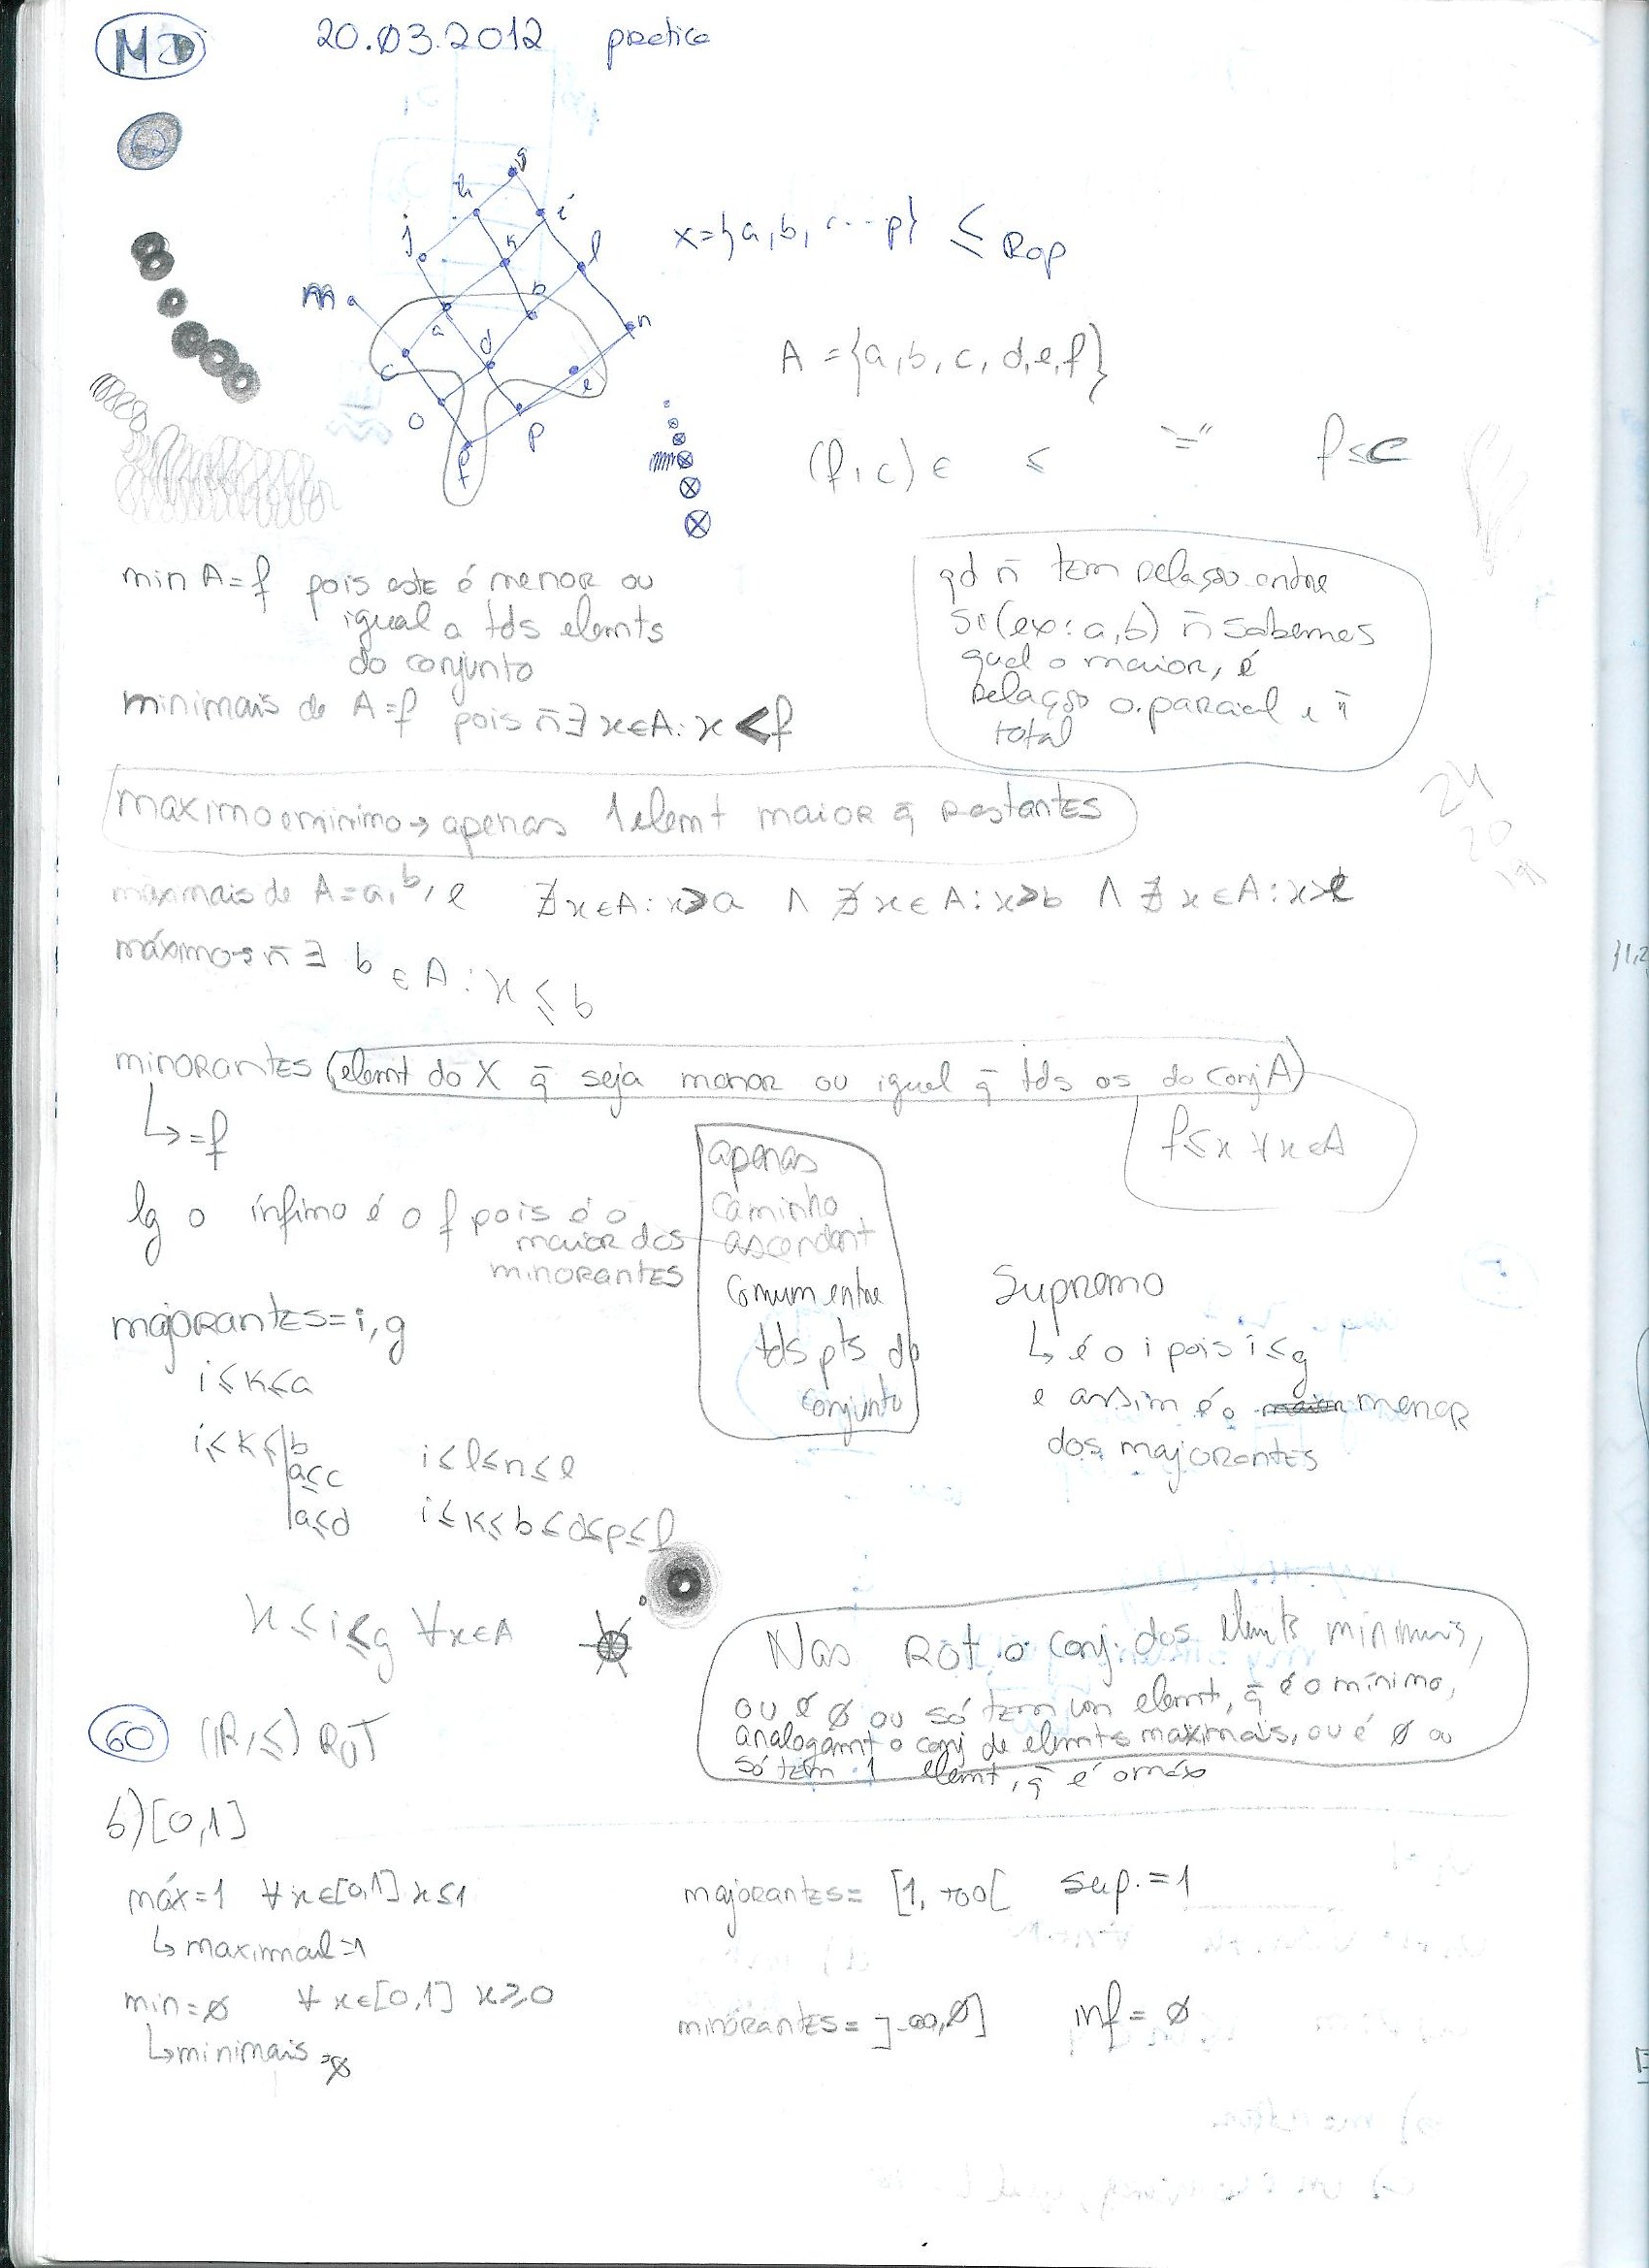 MD 20.03.2012 pratica
g
h i
j k l
m b n
a
c d e
o p
f
x={a,b, c...p} ≤ ROP
A = {a,b, c, d,e,f}
(f,c) ∈ ≤ "=" f≤c
min A=f pois este é menor ou
igual a tds elemts
do conjunto
minimais de A=f pois ñ∃ x∈A: x<f
qd ñ tem relação entre
si (ex: a,b) ñ sabemos
qual o maior, é
relação o. parcial e ñ
total
24
20
19
maximo e minimo → apenas 1 elemt maior q̄ restantes
maximais de A=a, b, e ∄x∈A: x>a ∧ ∄x∈A: x>b ∧ ∄x∈A: x>e
máximo→ñ∃ b∈A: x≤b
minorantes (elemt do X q̄ seja menor ou igual q̄ tds os do conj A)
↳=f
f≤x ∀x∈A
lg o ínfimo é o f pois é o
maior dos
minorantes
apenas
caminho
ascendent
comum entre
tds pts do
conjunto
majorantes=i,g
i≤k≤a
i≤k≤ b
a≤c
a≤d
i≤l≤n≤e
i≤k≤b≤d≤p≤f
Supremo
↳ é o i pois i≤g
e assim é o maior menor
dos majorantes
x≤i≤g ∀x∈A
Nas ROT o conj. dos elemts minimais,
ou é ∅ ou só tem um elemt, q̄ é o mínimo,
analogamt o conj de elemts maximais, ou é ∅ ou
só tem 1 elemt, q̄ é o máx
60 (ℝ,≤) ROT
b)[0,1]
máx=1 ∀x∈[0,1] x≤1
↳ maximal=1
min=∅ ∀x∈[0,1] x≥0
↳minimais=∅
majorantes= [1, +∞[ sup.=1
minorantes= ]-∞,∅] inf= ∅